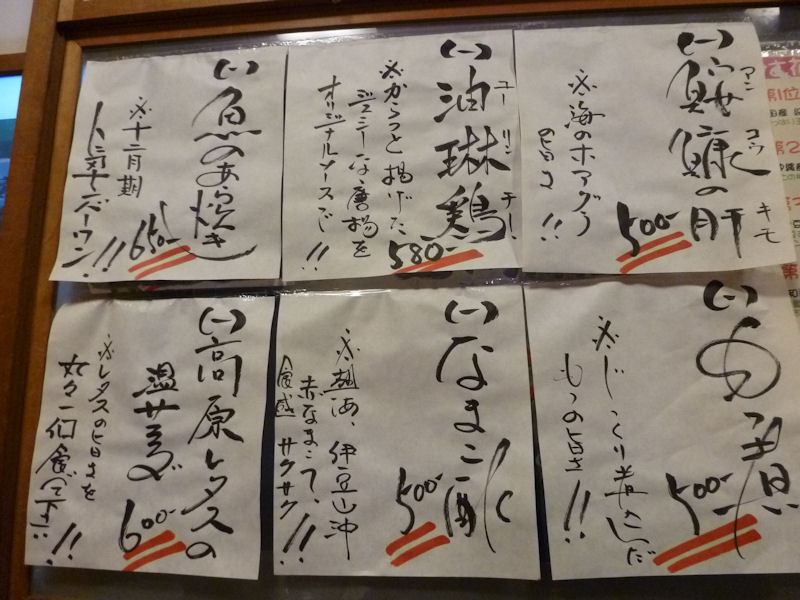 (一)鮟鱇の肝
アン コウ キモ
※海のホアグラ
の旨さ!!
500-
(一)油琳鶏
ユー リン チー!
※からっと揚げた
ジューシーな唐揚を
オリジナルソースで!!
580-
(一)魚のあら焼き
※十二月期
人気ナンバーワン!!
650-
(一)もつ煮
※じっくり煮込んだ
もつの旨さ!!
500-
(一)なまこ酢
※熱海、伊豆山沖
赤なまこで、
食感サクサク!!
500-
(一)高原レタスの
温サラダ
※レタスの旨さを
丸々一個食べて下さい!!
600-
第1位
第2
第